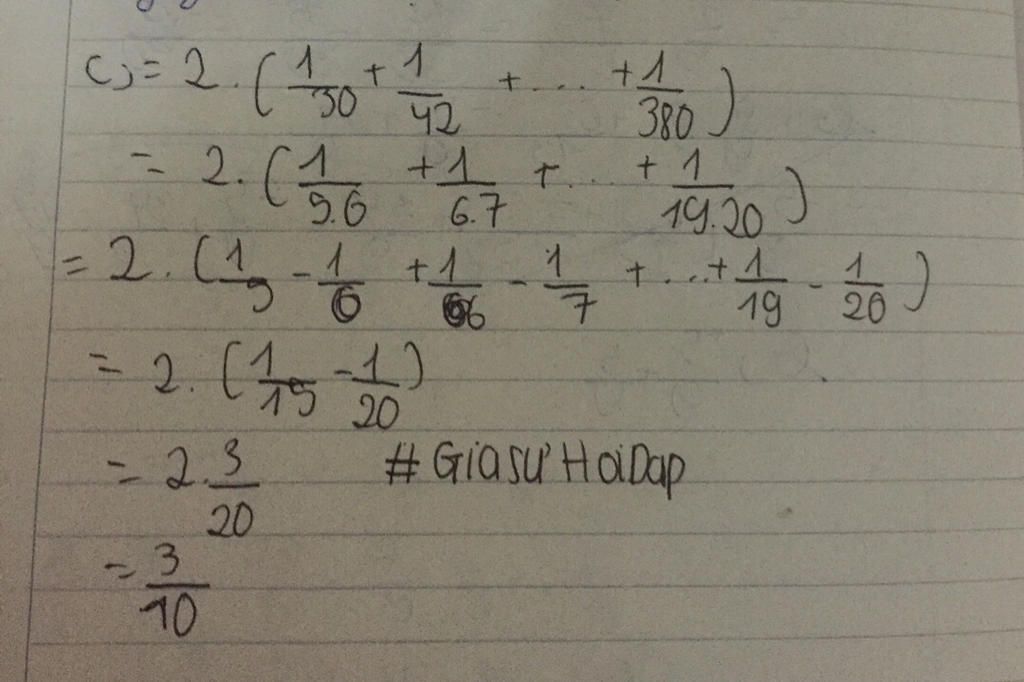 c) = 2 . ( 1/30 + 1/42 + ... + 1/380 )
= 2. ( 1/5.6 + 1/6.7 + ... + 1/19.20 )
= 2 . ( 1/5 - 1/6 + 1/6 - 1/7 + ... + 1/19 - 1/20 )
= 2. ( 1/15 - 1/20 )
= 2. 3/20 #GiasưHoiDap
= 3/10